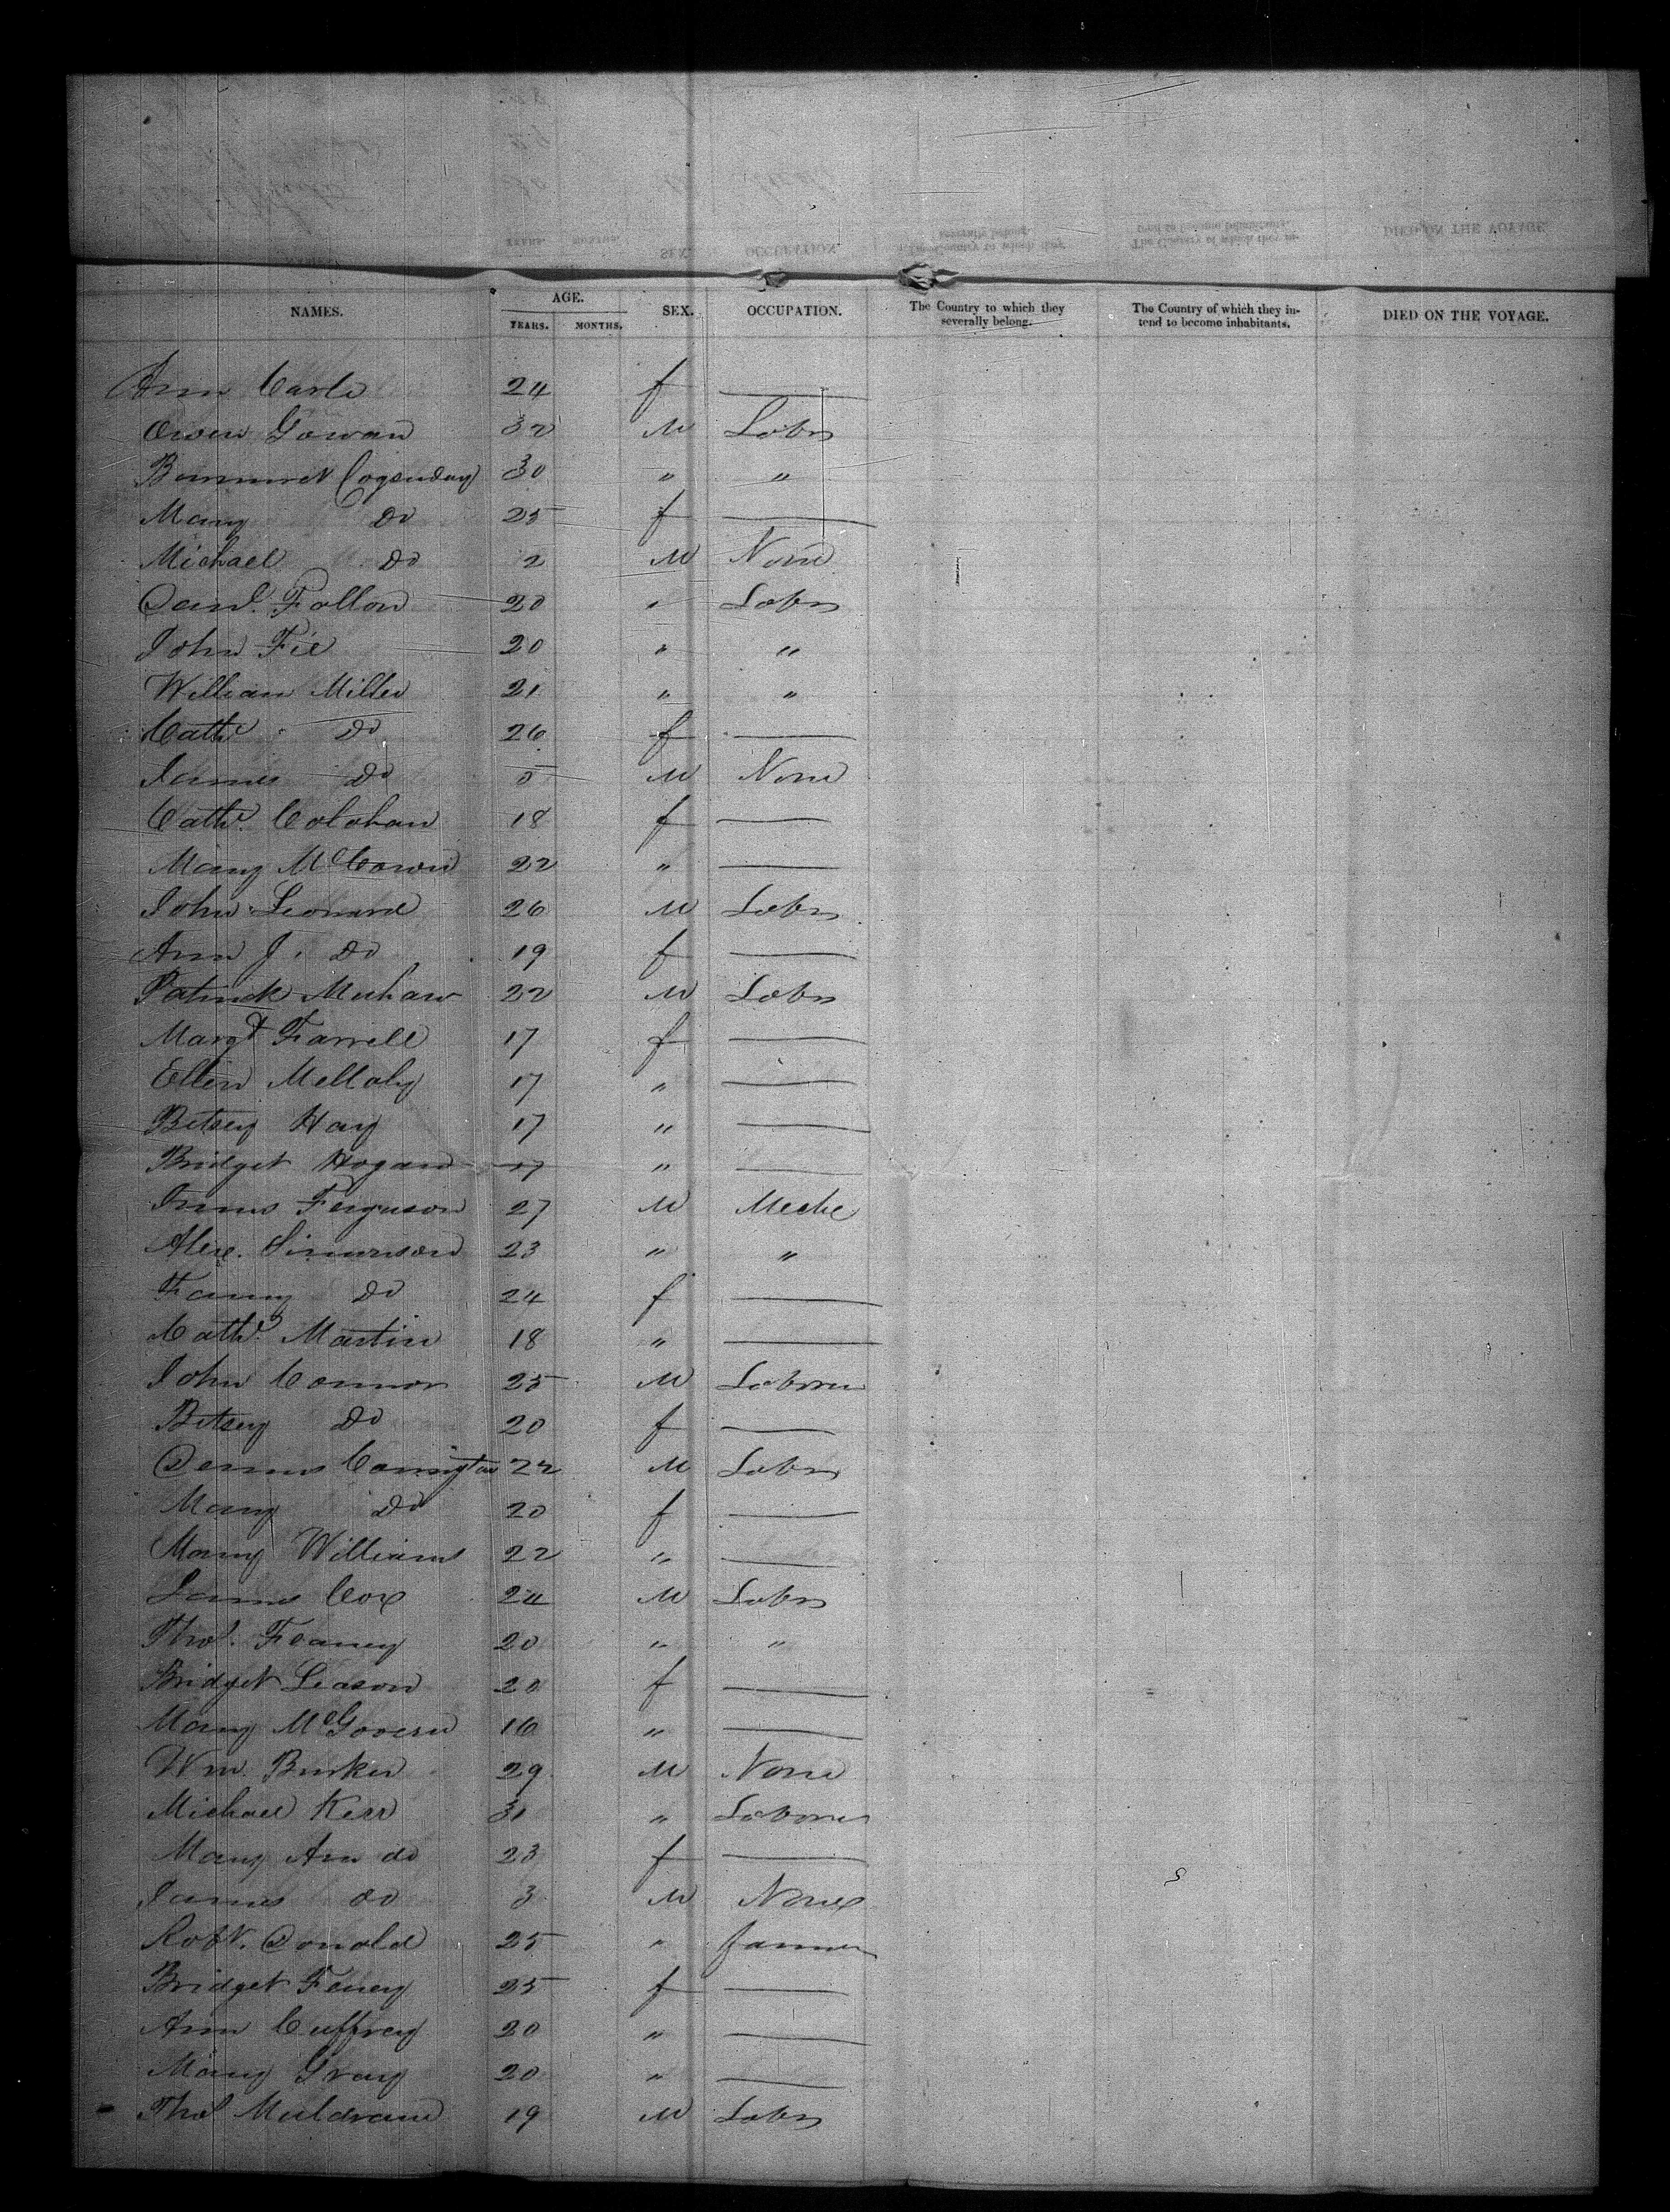 NAMES. AGE. SEX. OCCUPATION. The Country to which they severally belong. The Country of which they intend to become inhabitants. DIED ON THE VOYAGE.
YEARS. MONTHS.
Ann Carle 24 f —
Owen Gowan 32 M Labr
30 " "
Mary Do 25 f —
Michael Do 2 M None
Danl. Fallon 20 " Labr
John Fie 20 " "
William Miller 21 " "
Cathe Do 26 f —
James Do 5 M None
Cathe. Colohan 18 f —
Mary McCowin 22 " —
John Leonard 26 M Labr
Ann J. Do 19 f —
Patrick Meehaw 22 M Labr
Margt Farrell 17 f —
Ellen Mellaly 17 " —
Betsey Hay 17 " —
Bridget Hogan 17 " —
James Ferguson 27 M Meche
Alex. Simonson 23 " "
Fanny Do 24 f —
Cathe. Martin 18 " —
John Connor 25 M Laborer
Betsey Do 20 f —
Dennis Conington 22 M Labr
Mary Do 20 f —
Mary Williams 22 " —
James Cox 24 M Labr
Thos. Feaney 20 " "
Bridget Leason 20 f —
Mary McGovern 16 " —
Wm. Burker 29 M None
Michael Kerr 31 " Laborer
Mary Ann do 23 f —
James do 3 M None
Robt. Donald 25 " farmer
Bridget Feney 25 f —
Ann Cuffrey 20 " —
Mary Gray 20 " —
Thos Muldraun 19 M Labr